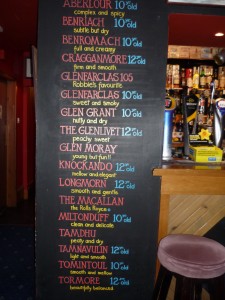 ABERLOUR 10yr old
complex and spicy
BENRIACH 10yr old
subtle but dry
BENROMACH 10yr old
full and creamy
CRAGGANMORE 12yr old
firm and smooth
GLENFARCLAS 105
Robbie's favourite
GLENFARCLAS 10yr old
sweet and smoky
GLEN GRANT 10yr old
nutty and dry
THE GLENLIVET 12yr old
peachy sweet
GLEN MORAY
young but fun!!
KNOCKANDO 12yr old
mellow and elegant
LONGMORN 12yr old
smooth and gentle
THE MACALLAN
the Rolls Royce
MILTONDUFF 10yr old
clean and delicate
TAMDHU
peaty and dry
TAMNAVULIN 12yr old
light and smooth
TOMINTOUL 10yr old
smooth and mellow
TORMORE 12yr old
beautifully balanced